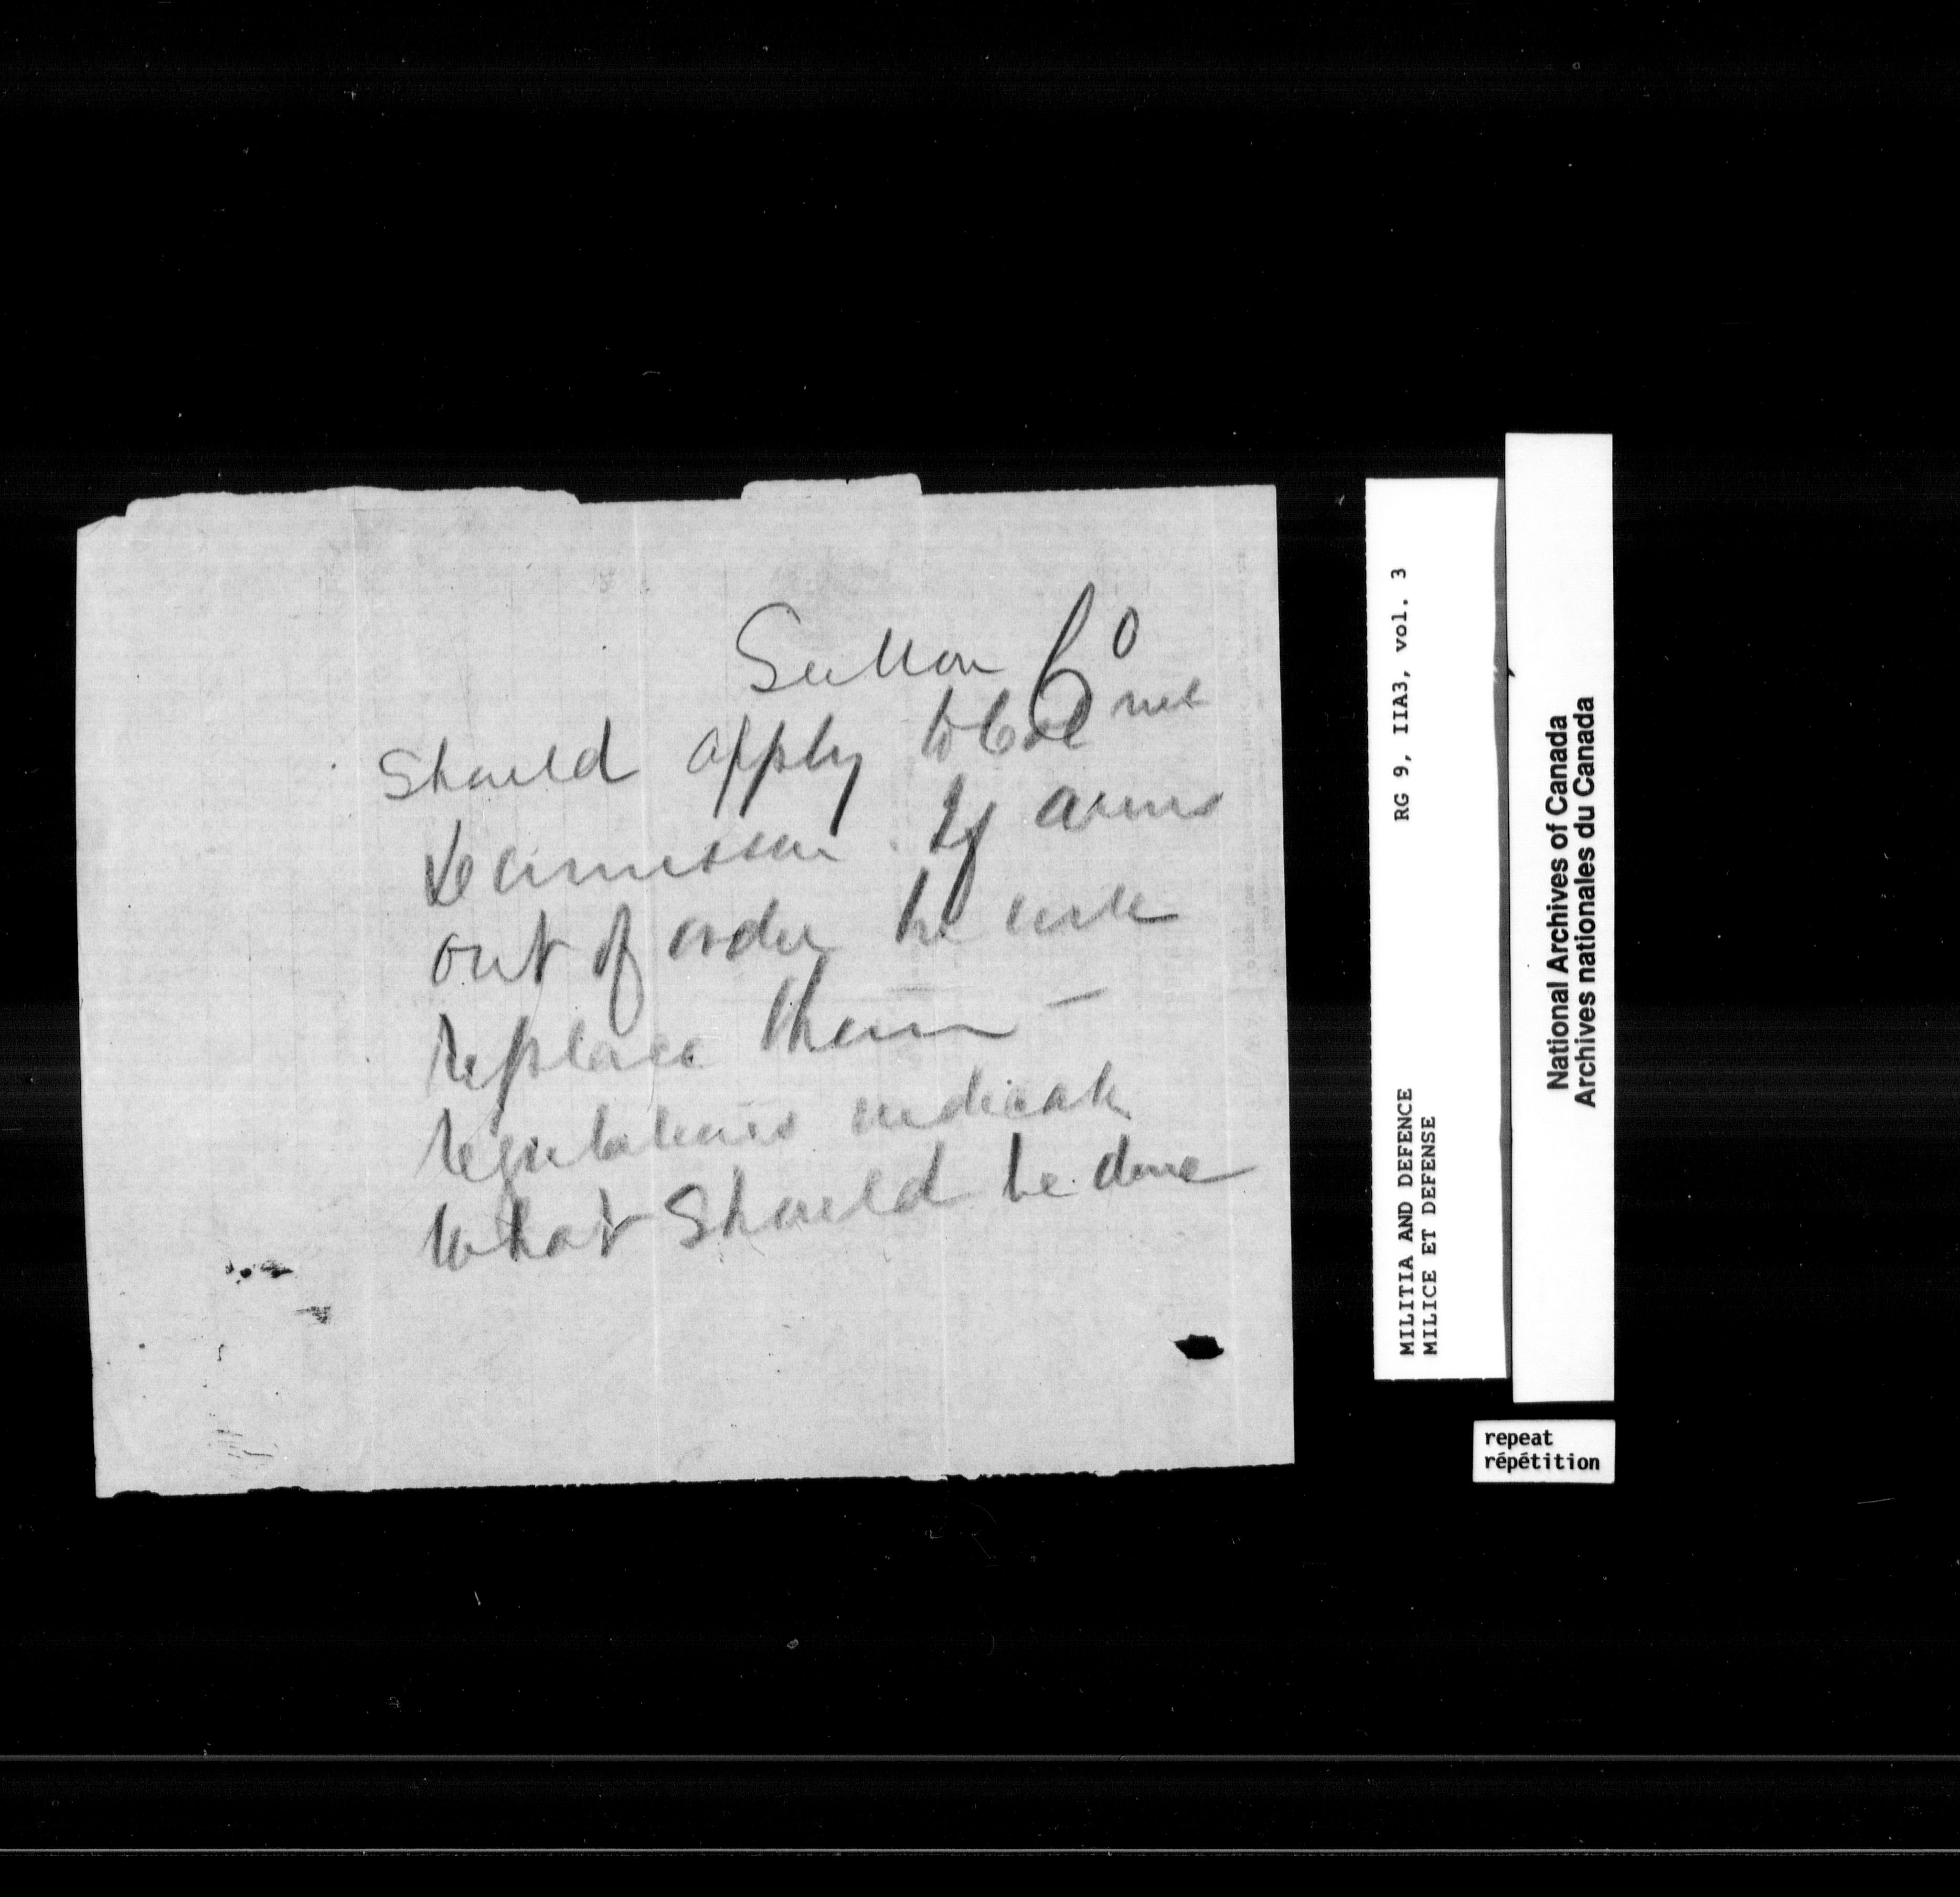 Sutton Co
Should apply to Col
. If arms
out of order he will
replace them —
regulations indicate
What Should be done
RG 9, IIA3, vol. 3
MILITIA AND DEFENCE
MILICE ET DEFENSE
National Archives of Canada
Archives nationales du Canada
repeat
répétition